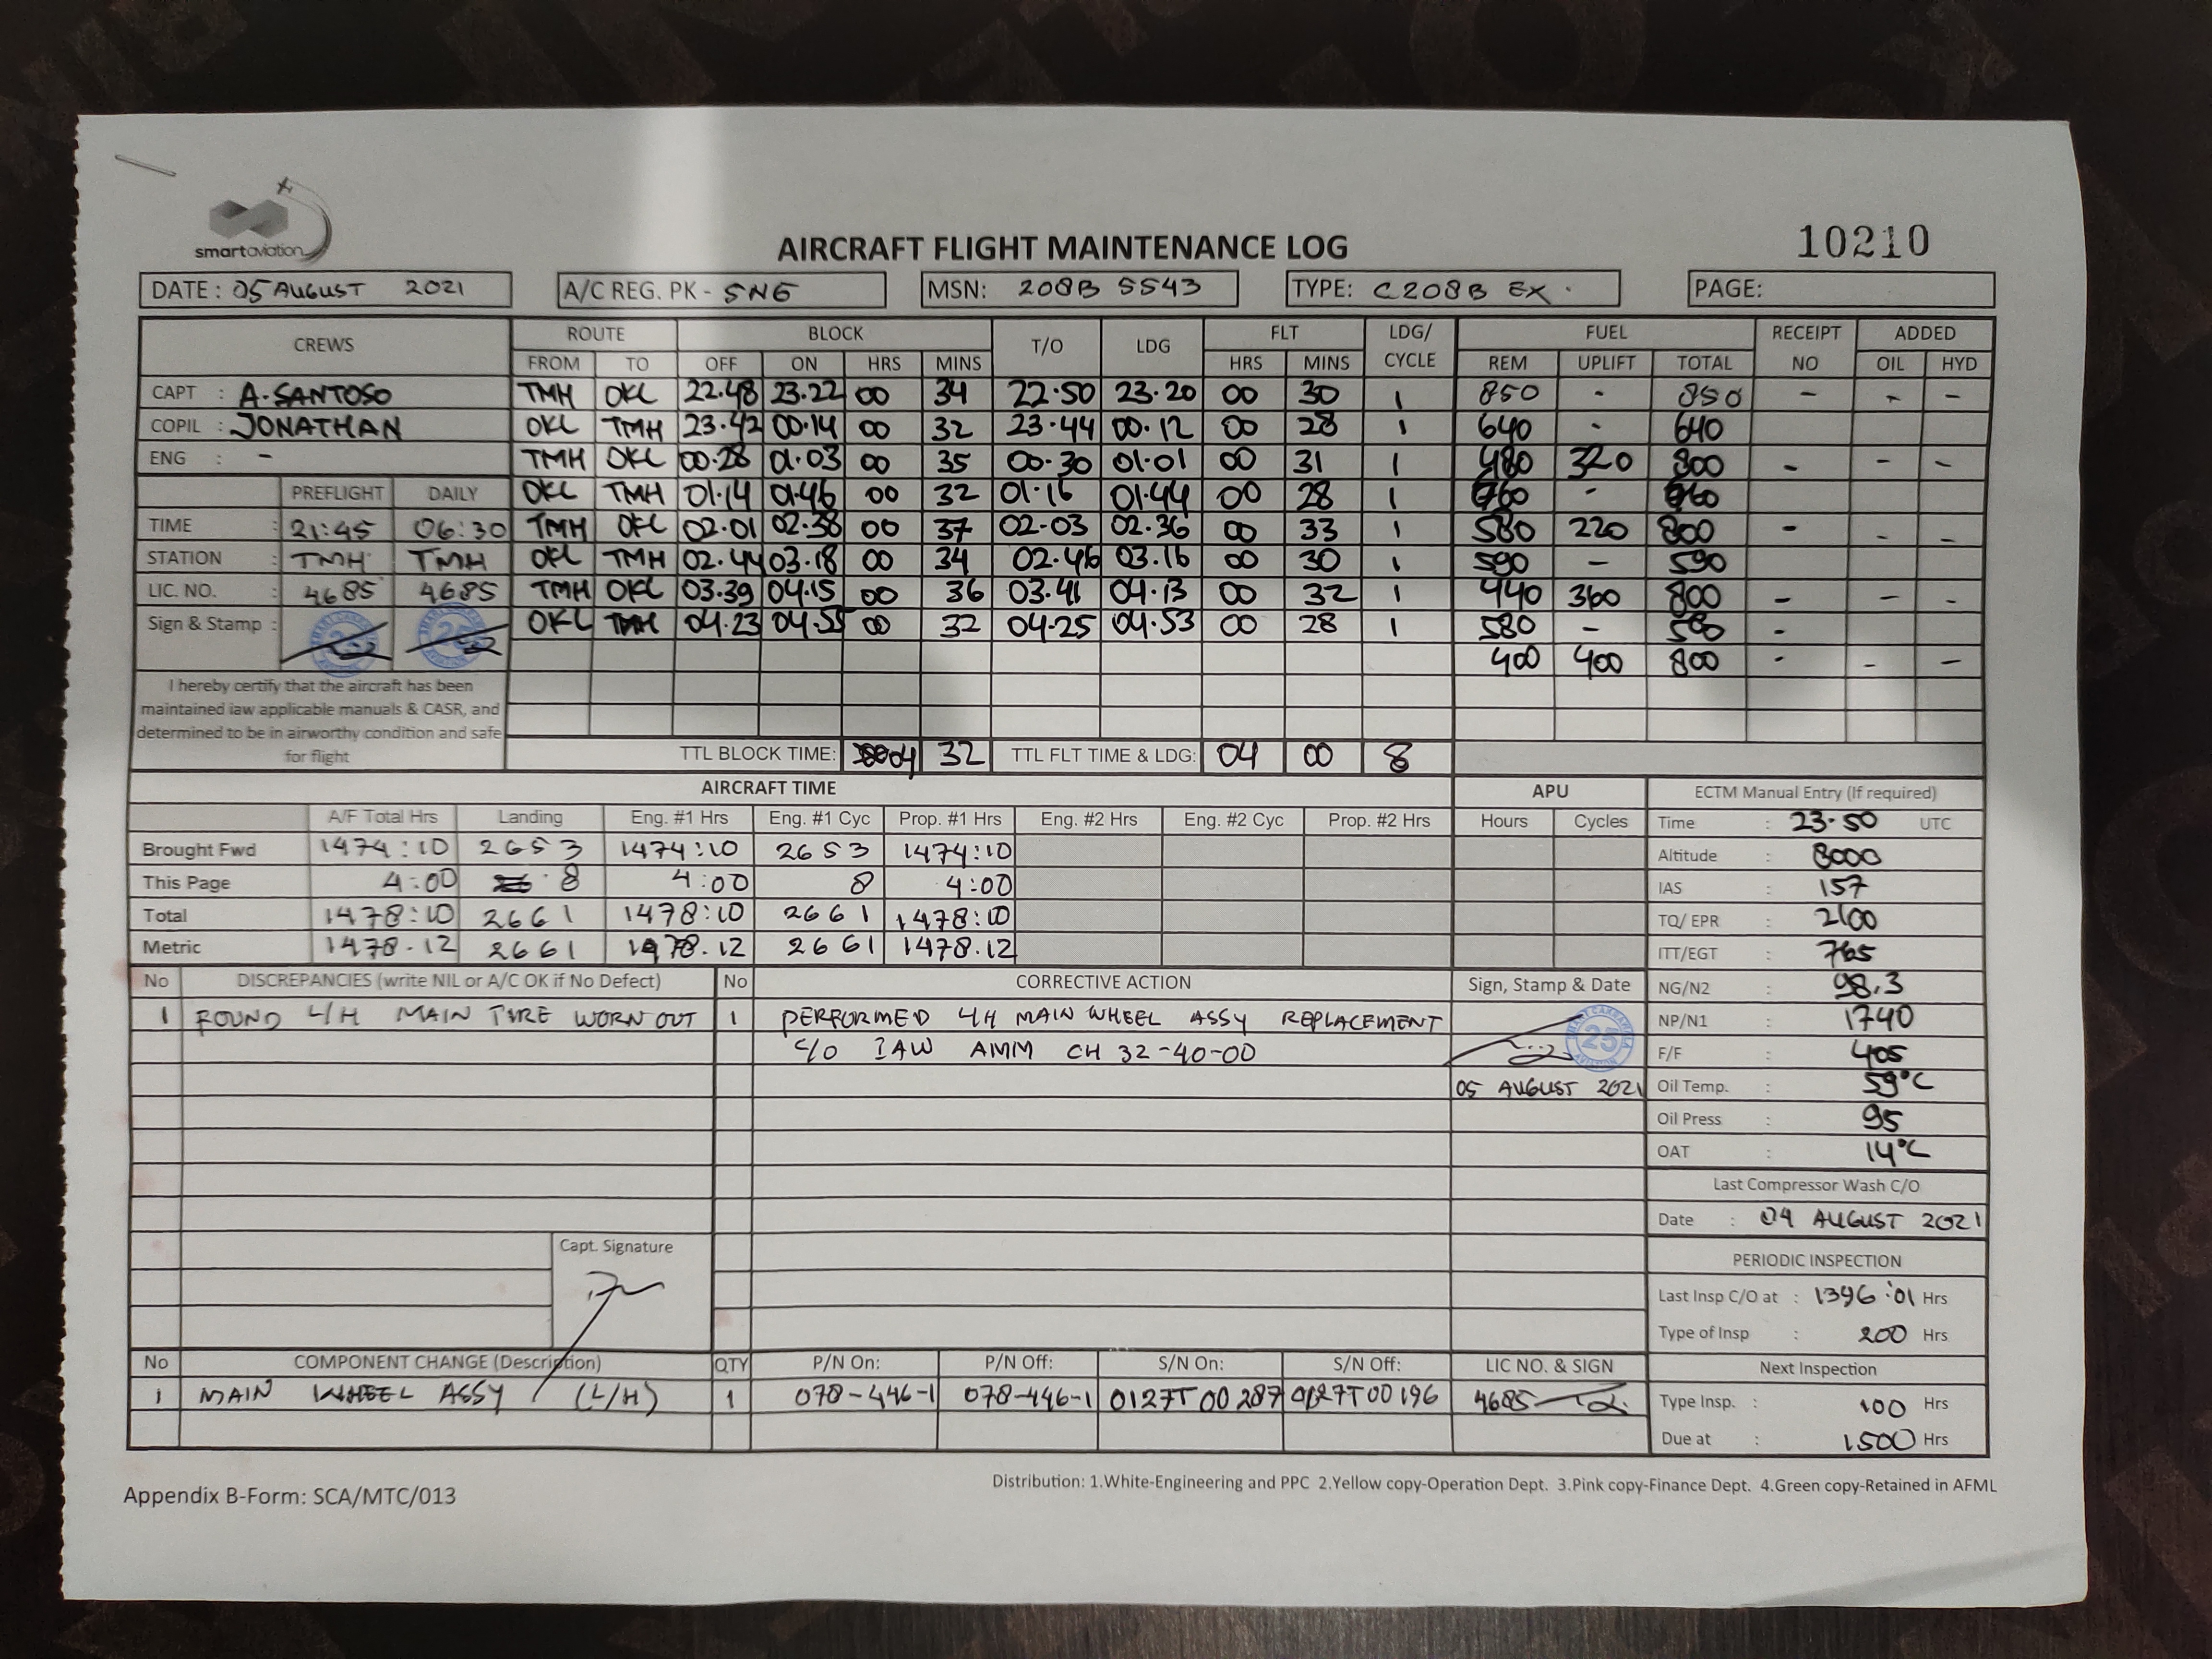 smartaviation
AIRCRAFT FLIGHT MAINTENANCE LOG
10210
DATE : 05 AUGUST 2021 A/C REG. PK - SNE MSN: 208B 5543 TYPE: C208B EX . PAGE:
CREWS ROUTE BLOCK T/O LDG FLT LDG/ CYCLE FUEL RECEIPT NO ADDED
FROM TO OFF ON HRS MINS HRS MINS REM UPLIFT TOTAL OIL HYD
CAPT : A. SANTOSO TMH OKL 22.48 23.22 00 34 22.50 23.20 00 30 1 850 - 850 - - -
COPIL : JONATHAN OKL TMH 23.42 00.14 00 32 23.44 00.12 00 28 1 640 - 640
ENG : - TMH OKL 00.28 01.03 00 35 00.30 01.01 00 31 1 480 320 800 - - -
PREFLIGHT DAILY OKL TMH 01.14 01.46 00 32 01.16 01.44 00 28 1 -
TIME : 21:45 06:30 TMH OKL 02.01 02.38 00 37 02.03 02.36 00 33 1 580 220 800 - - -
STATION : TMH TMH OKL TMH 02.44 03.18 00 34 02.46 03.16 00 30 1 590 - 590
LIC. NO. : 4685 4685 TMH OKL 03.39 04.15 00 36 03.41 04.13 00 32 1 440 360 800 - - -
Sign & Stamp : OKL TMH 04.23 04.55 00 32 04.25 04.53 00 28 1 580 - 580 -
400 400 800 - - -
I hereby certify that the aircraft has been
maintained iaw applicable manuals & CASR, and
determined to be in airworthy condition and safe
for flight
TTL BLOCK TIME: 04 32 TTL FLT TIME & LDG: 04 00 8
AIRCRAFT TIME APU ECTM Manual Entry (If required)
A/F Total Hrs Landing Eng. #1 Hrs Eng. #1 Cyc Prop. #1 Hrs Eng. #2 Hrs Eng. #2 Cyc Prop. #2 Hrs Hours Cycles Time : 23.50 UTC
Brought Fwd 1474:10 2653 1474:10 2653 1474:10 Altitude : 8000
This Page 4:00 8 4:00 8 4:00 IAS : 157
Total 1478:10 2661 1478:10 2661 1478:10 TQ/ EPR : 2100
Metric 1478.12 2661 1478.12 2661 1478.12 ITT/EGT : 765
No DISCREPANCIES (write NIL or A/C OK if No Defect) No CORRECTIVE ACTION Sign, Stamp & Date NG/N2 : 98.3
1 FOUND L/H MAIN TIRE WORN OUT 1 PERFORMED L/H MAIN WHEEL ASSY REPLACEMENT 25 NP/N1 : 1740
C/O IAW AMM CH 32-40-00 F/F : 405
05 AUGUST 2021 Oil Temp. : 59°C
Oil Press : 95
OAT : 14°C
Last Compressor Wash C/O
Date : 04 AUGUST 2021
Capt. Signature
PERIODIC INSPECTION
Last Insp C/O at : 1396:01 Hrs
Type of Insp : 200 Hrs
No COMPONENT CHANGE (Description) QTY P/N On: P/N Off: S/N On: S/N Off: LIC NO. & SIGN Next Inspection
1 MAIN WHEEL ASSY (L/H) 1 078-446-1 078-446-1 0127T00287 0127T00196 4685 Type Insp. : 100 Hrs
Due at : 1500 Hrs
Appendix B-Form: SCA/MTC/013
Distribution: 1.White-Engineering and PPC 2.Yellow copy-Operation Dept. 3.Pink copy-Finance Dept. 4.Green copy-Retained in AFML